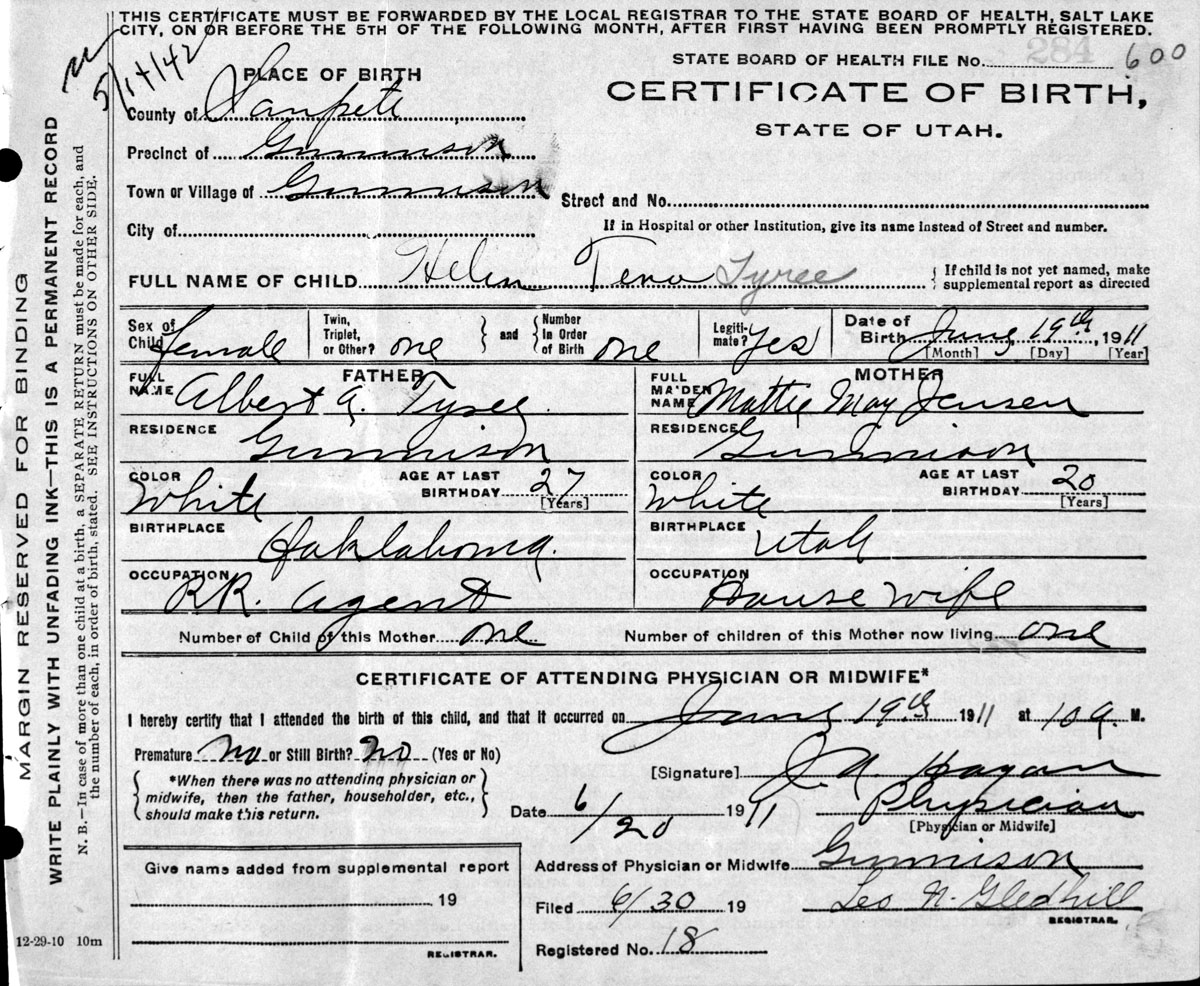 THIS CERTIFICATE MUST BE FORWARDED BY THE LOCAL REGISTRAR TO THE STATE BOARD OF HEALTH, SALT LAKE
CITY, ON OR BEFORE THE 5TH OF THE FOLLOWING MONTH, AFTER FIRST HAVING BEEN PROMPTLY REGISTERED.
5/14/42
284
STATE BOARD OF HEALTH FILE No. 600
PLACE OF BIRTH
CERTIFICATE OF BIRTH,
STATE OF UTAH.
County of Sanpete
Precinct of Gunnison
Town or Village of Gunnison
Street and No.
City of
If in Hospital or other Institution, give its name instead of Street and number.
FULL NAME OF CHILD Helen Tena Tyree
{ If child is not yet named, make
supplemental report as directed
Sex of Child female Twin, Triplet, or Other? one } and { Number in Order of Birth one Legiti-mate? Yes Date of Birth June 19th 1911
[Month] [Day] [Year]
FATHER
FULL NAME Albert G. Tyree
RESIDENCE Gunnison
COLOR White AGE AT LAST BIRTHDAY 27 [Years]
BIRTHPLACE Oaklahoma.
OCCUPATION RR. Agent
MOTHER
FULL MAIDEN NAME Mattie May Jensen
RESIDENCE Gunnison
COLOR White AGE AT LAST BIRTHDAY 20 [Years]
BIRTHPLACE Utah
OCCUPATION House Wife
Number of Child of this Mother one Number of children of this Mother now living one
CERTIFICATE OF ATTENDING PHYSICIAN OR MIDWIFE*
I hereby certify that I attended the birth of this child, and that it occurred on June 19th 1911 at 10 a. M.
Premature no or Still Birth? no (Yes or No)
{ *When there was no attending physician or
midwife, then the father, householder, etc.,
should make this return. }
[Signature] J. N. Hagan
Date 6/20 1911 Physician
[Physician or Midwife]
Address of Physician or Midwife Gunnison
Filed 6/30 19 Leo N. Gledhill
REGISTRAR.
Registered No. 18
Give name added from supplemental report
19
REGISTRAR.
12-29-10 10m
MARGIN RESERVED FOR BINDING
WRITE PLAINLY WITH UNFADING INK—THIS IS A PERMANENT RECORD
N. B.—In case of more than one child at a birth, a SEPARATE RETURN must be made for each, and
the number of each, in order of birth, stated. SEE INSTRUCTIONS ON OTHER SIDE.